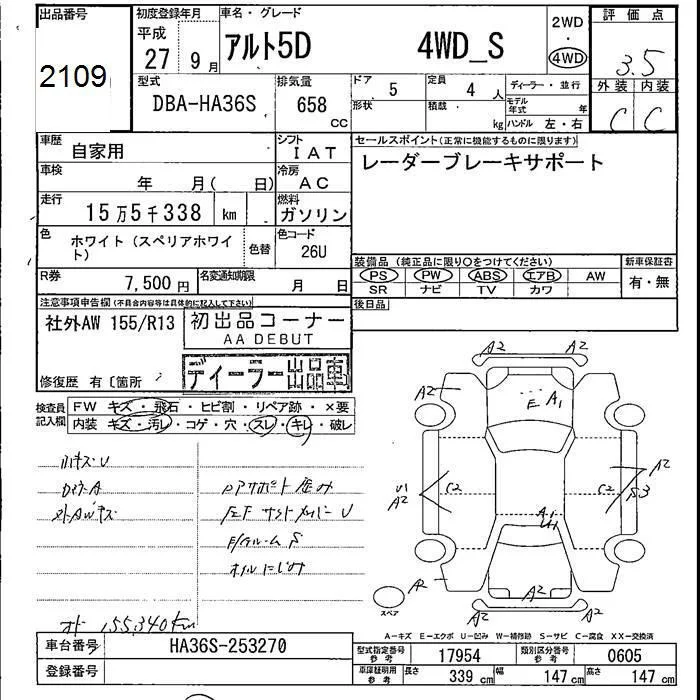 出品番号 初度登録年月 車名・グレード 評価点
2109 平成 27 9月 アルト5D 4WD_S 2WD 4WD 3.5
型式 DBA-HA36S 排気量 658 CC ドア 5 定員 4人 ディーラー・並行 外装 内装
形状 積載 kg モデル年式 年 C C
ハンドル 左・右
車歴 自家用 シフト IAT セールスポイント(正常に機能するものに限ります)
車検 年 月( 日) 冷房 AC レーダーブレーキサポート
走行 15万5千338 km 燃料 ガソリン
色 ホワイト(スペリアホワイト) 色替 色コード 26U
装備品(純正品に限り○をつけてください) 新車保証書
PS PW ABS エアB AW 有・無
SR ナビ TV カワ
R券 7,500円 名変通知期限 月 日
後日品
注意事項申告欄(不具合内容等は具体的に記入して下さい)
社外AW 155/R13 初出品コーナー
AA DEBUT
ディーラー出品車
修復歴 有〔箇所
検査員記入欄 FW キズ・飛石・ヒビ割・リペア跡・×要
内装 キズ・汚レ・コゲ・穴・スレ・キレ・破レ
A2 A2
A2 E A1
U1 A2 C2 C2 A2 S3
A1 U1
A2 A2 A2
スペア
オド 155,340km
A-キズ E-エクボ U-凹み W-補修跡 S-サビ C-腐食 XX-交換済
車台番号 HA36S-253270 型式指定番号 参考 17954 類別区分番号 参考 0605
登録番号 車庫証明用 参考 長さ 339 cm 幅 147 cm 高さ 147 cm